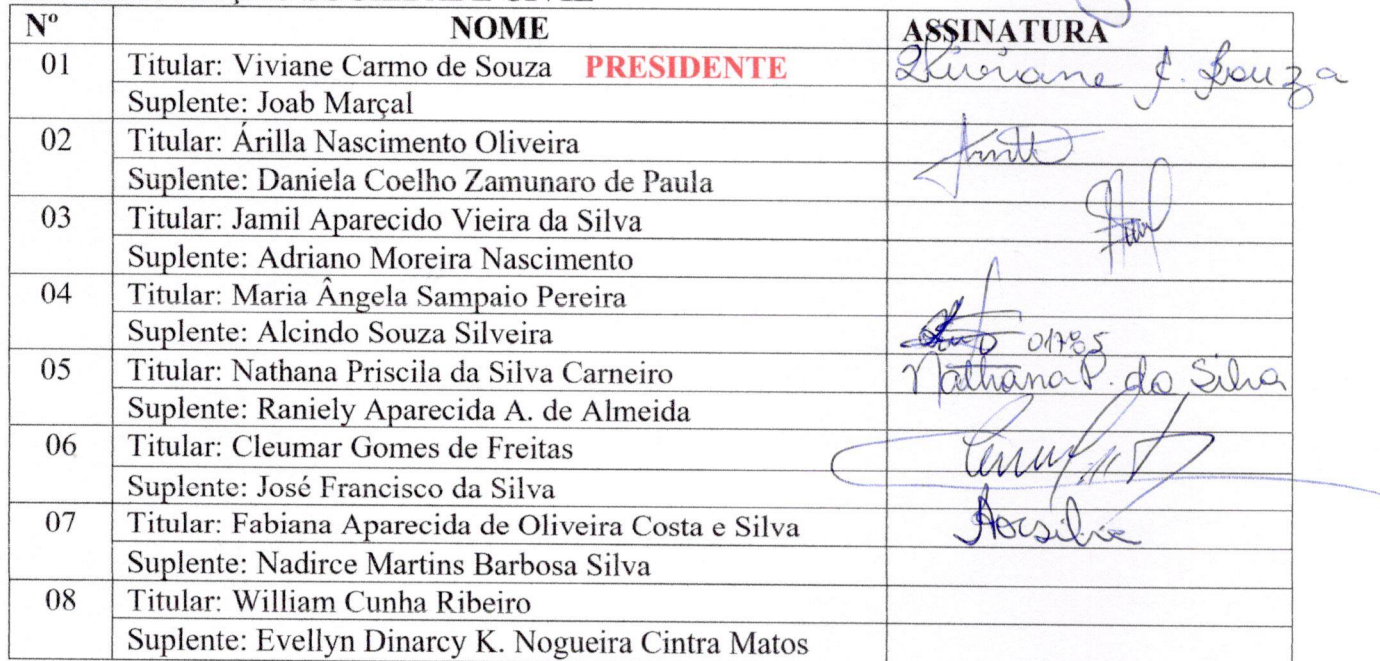 Nº NOME ASSINATURA
01 Titular: Viviane Carmo de Souza PRESIDENTE Viviane C. Souza
Suplente: Joab Marçal
02 Titular: Árilla Nascimento Oliveira
Suplente: Daniela Coelho Zamunaro de Paula
03 Titular: Jamil Aparecido Vieira da Silva
Suplente: Adriano Moreira Nascimento
04 Titular: Maria Ângela Sampaio Pereira
Suplente: Alcindo Souza Silveira 01785
05 Titular: Nathana Priscila da Silva Carneiro Nathana P. da Silva
Suplente: Raniely Aparecida A. de Almeida
06 Titular: Cleumar Gomes de Freitas
Suplente: José Francisco da Silva
07 Titular: Fabiana Aparecida de Oliveira Costa e Silva
Suplente: Nadirce Martins Barbosa Silva
08 Titular: William Cunha Ribeiro
Suplente: Evellyn Dinarcy K. Nogueira Cintra Matos